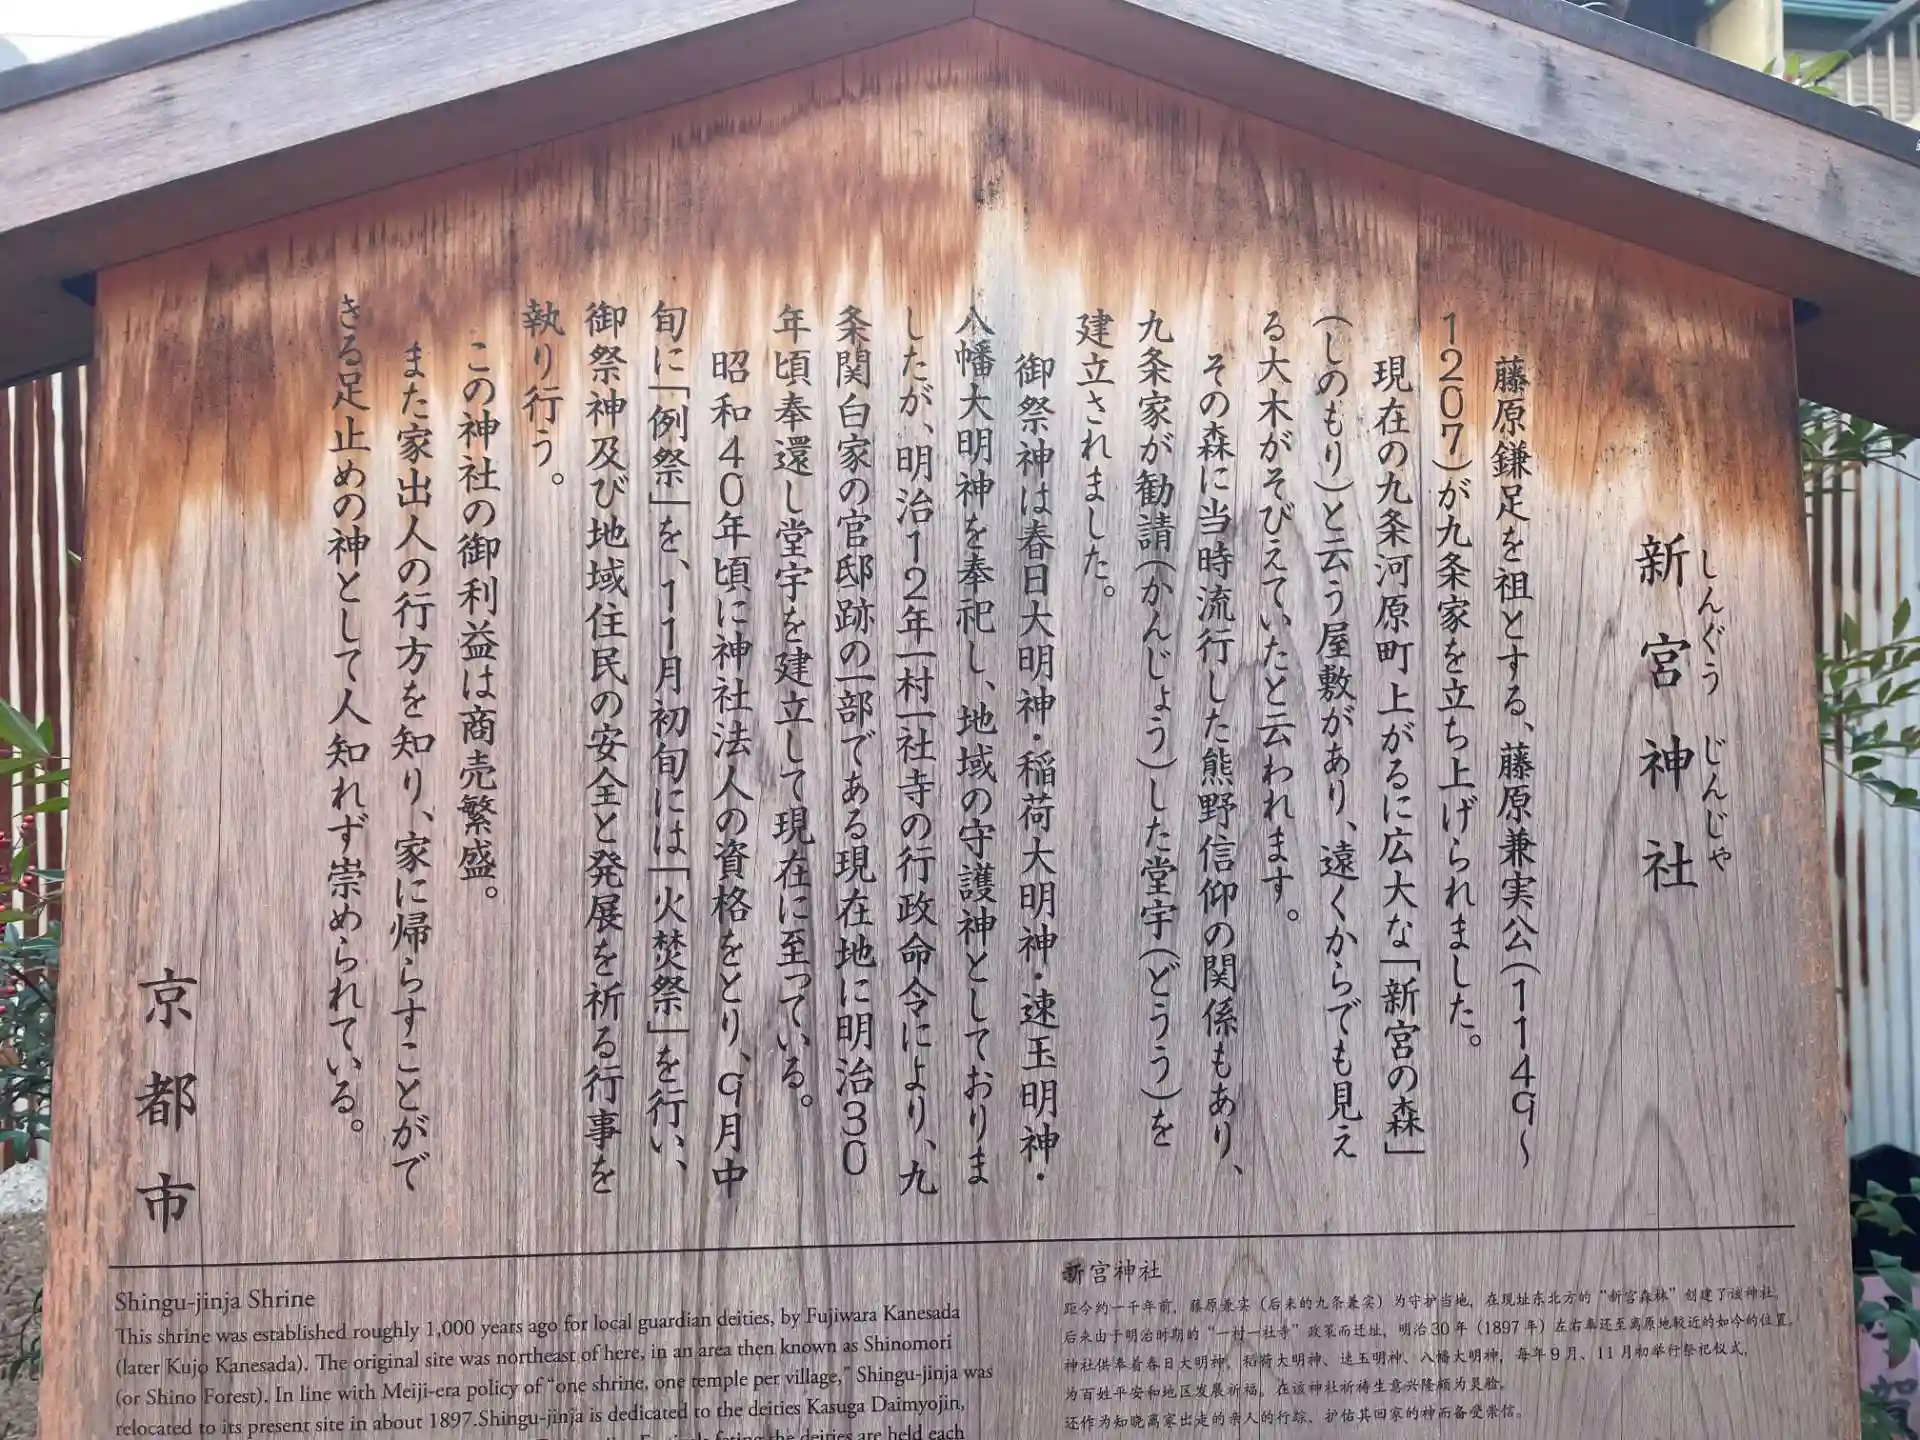 しんぐう じんじゃ
新宮神社
藤原鎌足を祖とする、藤原兼実公(1149〜
1207)が九条家を立ち上げられました。
現在の九条河原町上がるに広大な「新宮の森」
(しのもり)と云う屋敷があり、遠くからでも見え
る大木がそびえていたと云われます。
その森に当時流行した熊野信仰の関係もあり、
九条家が勧請(かんじょう)した堂宇(どうう)を
建立されました。
御祭神は春日大明神・稲荷大明神・速玉明神・
八幡大明神を奉祀し、地域の守護神としておりま
したが、明治12年一村一社寺の行政命令により、九
条関白家の官邸跡の一部である現在地に明治30
年頃奉還し堂宇を建立して現在に至っている。
昭和40年頃に神社法人の資格をとり、9月中
旬に「例祭」を、11月初旬には「火焚祭」を行い、
御祭神及び地域住民の安全と発展を祈る行事を
執り行う。
この神社の御利益は商売繁盛。
また家出人の行方を知り、家に帰らすことがで
きる足止めの神として人知れず崇められている。
京都市
Shingu-jinja Shrine
This shrine was established roughly 1,000 years ago for local guardian deities, by Fujiwara Kanesada
(later Kujo Kanesada). The original site was northeast of here, in an area then known as Shinomori
(or Shino Forest). In line with Meiji-era policy of “one shrine, one temple per village,” Shingu-jinja was
relocated to its present site in about 1897.Shingu-jinja is dedicated to the deities Kasuga Daimyojin,
the deiries are held each
新宫神社
距今约一千年前，藤原兼实（后来的九条兼实）为守护当地，在现址东北方的“新宫森林”创建了该神社，
后来由于明治时期的“一村一社寺”政策而迁址，明治30年（1897年）左右奉还至离原地较近的如今的位置。
神社供奉着春日大明神，稻荷大明神、速玉明神、八幡大明神，每年9月、11月初举行祭祀仪式，
为百姓平安和地区发展祈福。在该神社祈祷生意兴隆颇为灵验，
还作为知晓离家出走的亲人的行踪、护佑其回家的神而备受崇信。